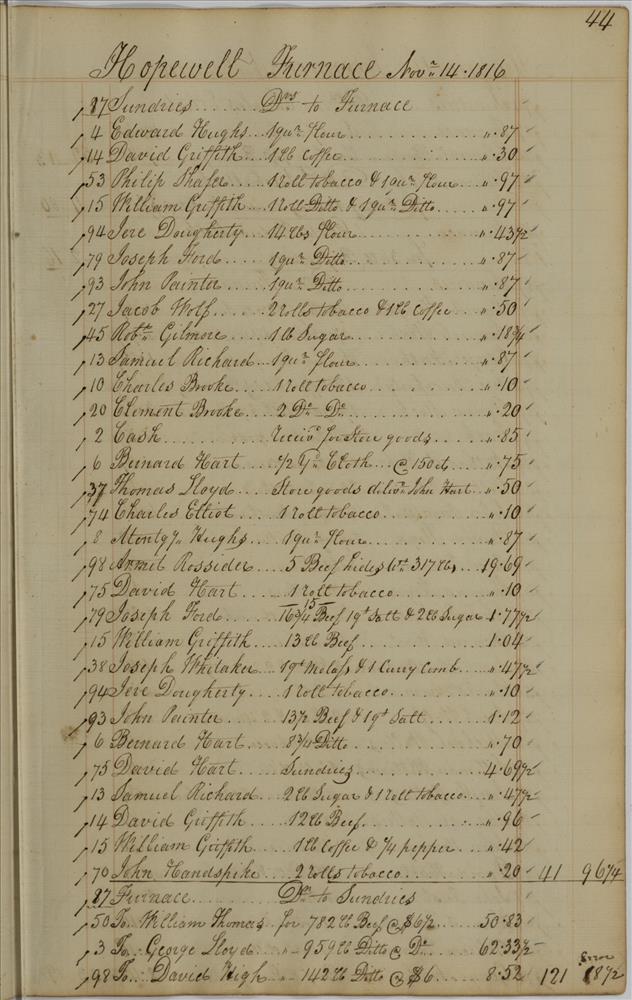 44
Hopewell Furnace Novr 14. 1816
87 Sundries Drs to Furnace
4 Edward Hughs 1 qur flour ". 87
14 David Griffith 1 lb Coffee ". 30
53 Philip Shafer 1 roll tobacco & 1 qur flour ". 97
15 William Griffith 1 roll Ditto & 1 qur Ditto ". 97
94 Jere Dougherty 14 lbs flour ". 43 1/2
79 Joseph Ford 1 qur Ditto ". 87
93 John Painter 1 qur Ditto ". 87
27 Jacob Wolf 2 rolls tobacco & 1 lb Coffee ". 50
45 Robt Gilmore 1 lb Sugar ". 18 3/4
13 Samuel Richard 1 qur flour ". 87
10 Charles Brooke 1 roll tobacco ". 10
20 Clement Brooke 2 Do Do ". 20
2 Cash for Store goods ". 85
6 Bernard Hart 1/2 Yd Cloth @ 150 ct ". 75
37 Thomas Lloyd Store goods John Hart ". 50
74 Charles Elliot 1 roll tobacco ". 10
8 Montgy Hughs 1 qur flour ". 87
98 Rossider 5 Beef hides wt 317 lbs 19.69
75 David Hart 1 roll tobacco ". 10
79 Joseph Ford 16 3/4 15 Beef 1 qt Salt & 2 lb Sugar 1.77 1/2
15 William Griffith 13 lb Beef 1.04
38 Joseph Whitaker 1 qt Molass & 1 Curry Comb ". 47 1/2
94 Jere Dougherty 1 roll tobacco ". 10
93 John Painter 13 1/2 Beef & 1 qt Salt 1.12
6 Bernard Hart 8 3/4 Ditto ". 70
75 David Hart Sundries 4.69 1/2
13 Samuel Richard 2 lb Sugar & 1 roll tobacco ". 47 1/2
14 David Griffith 12 lb Beef ". 96
15 William Griffith 1 lb Coffee & 1/4 pepper ". 42
70 John Handspike 2 rolls tobacco ". 20 41 96 3/4
87 Furnace Dr to Sundries
50 To William Thomas for 782 lb Beef @ $6 1/2 50.83
3 To George Lloyd " 959 lb Ditto @ Do 62.33 1/2
98 To David High 142 lb Ditto @ $6 8.52 121 Error 18 1/2